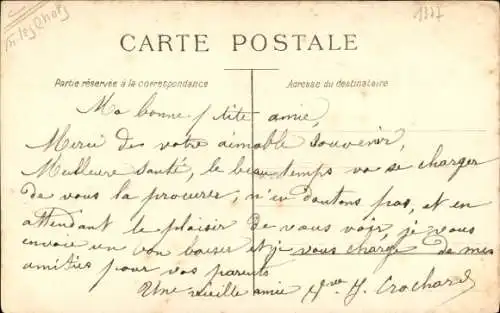 n-les-Chats
1377
CARTE POSTALE
Partie réservée à la correspondance
Adresse du destinataire
Ma bonne p'tite amie,
Merci de votre aimable souvenir,
Meilleure santé, le beau temps va se charger
de vous la procurer, n'en doutons pas, et en
attendant le plaisir de vous voir, je vous
envoie un bon baiser et je vous charge de mes
amitiés pour vos parents
Une vieille amie Yve J. Crochard